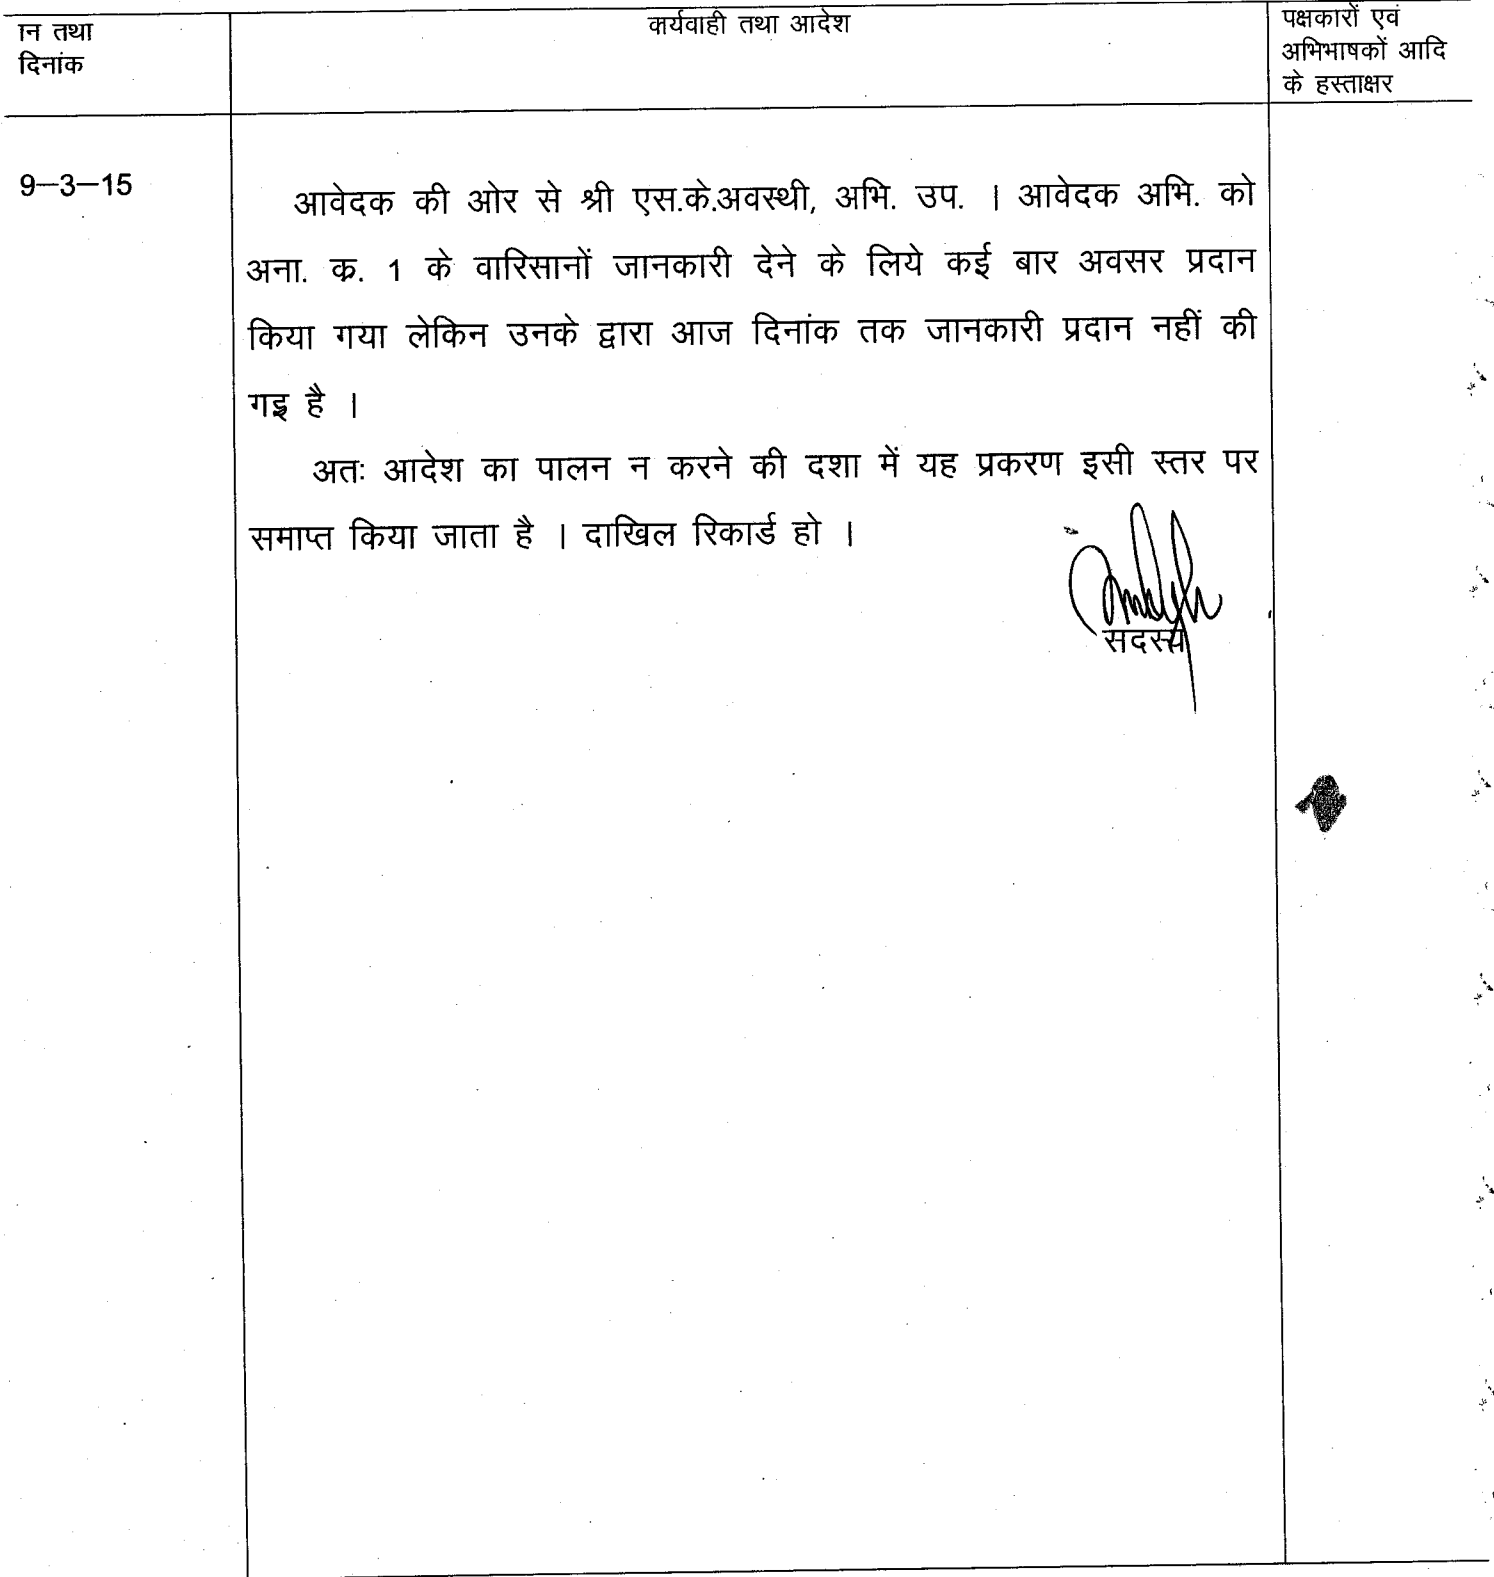 ान तथा
दिनांक
कार्यवाही तथा आदेश
पक्षकारों एवं
अभिभाषकों आदि
के हस्ताक्षर
9—3—15
आवेदक की ओर से श्री एस.के.अवस्थी, अभि. उप. । आवेदक अभि. को
अना. क्र. 1 के वारिसानों जानकारी देने के लिये कई बार अवसर प्रदान
किया गया लेकिन उनके द्वारा आज दिनांक तक जानकारी प्रदान नहीं की
गइ है ।
अतः आदेश का पालन न करने की दशा में यह प्रकरण इसी स्तर पर
समाप्त किया जाता है । दाखिल रिकार्ड हो ।
सदस्य